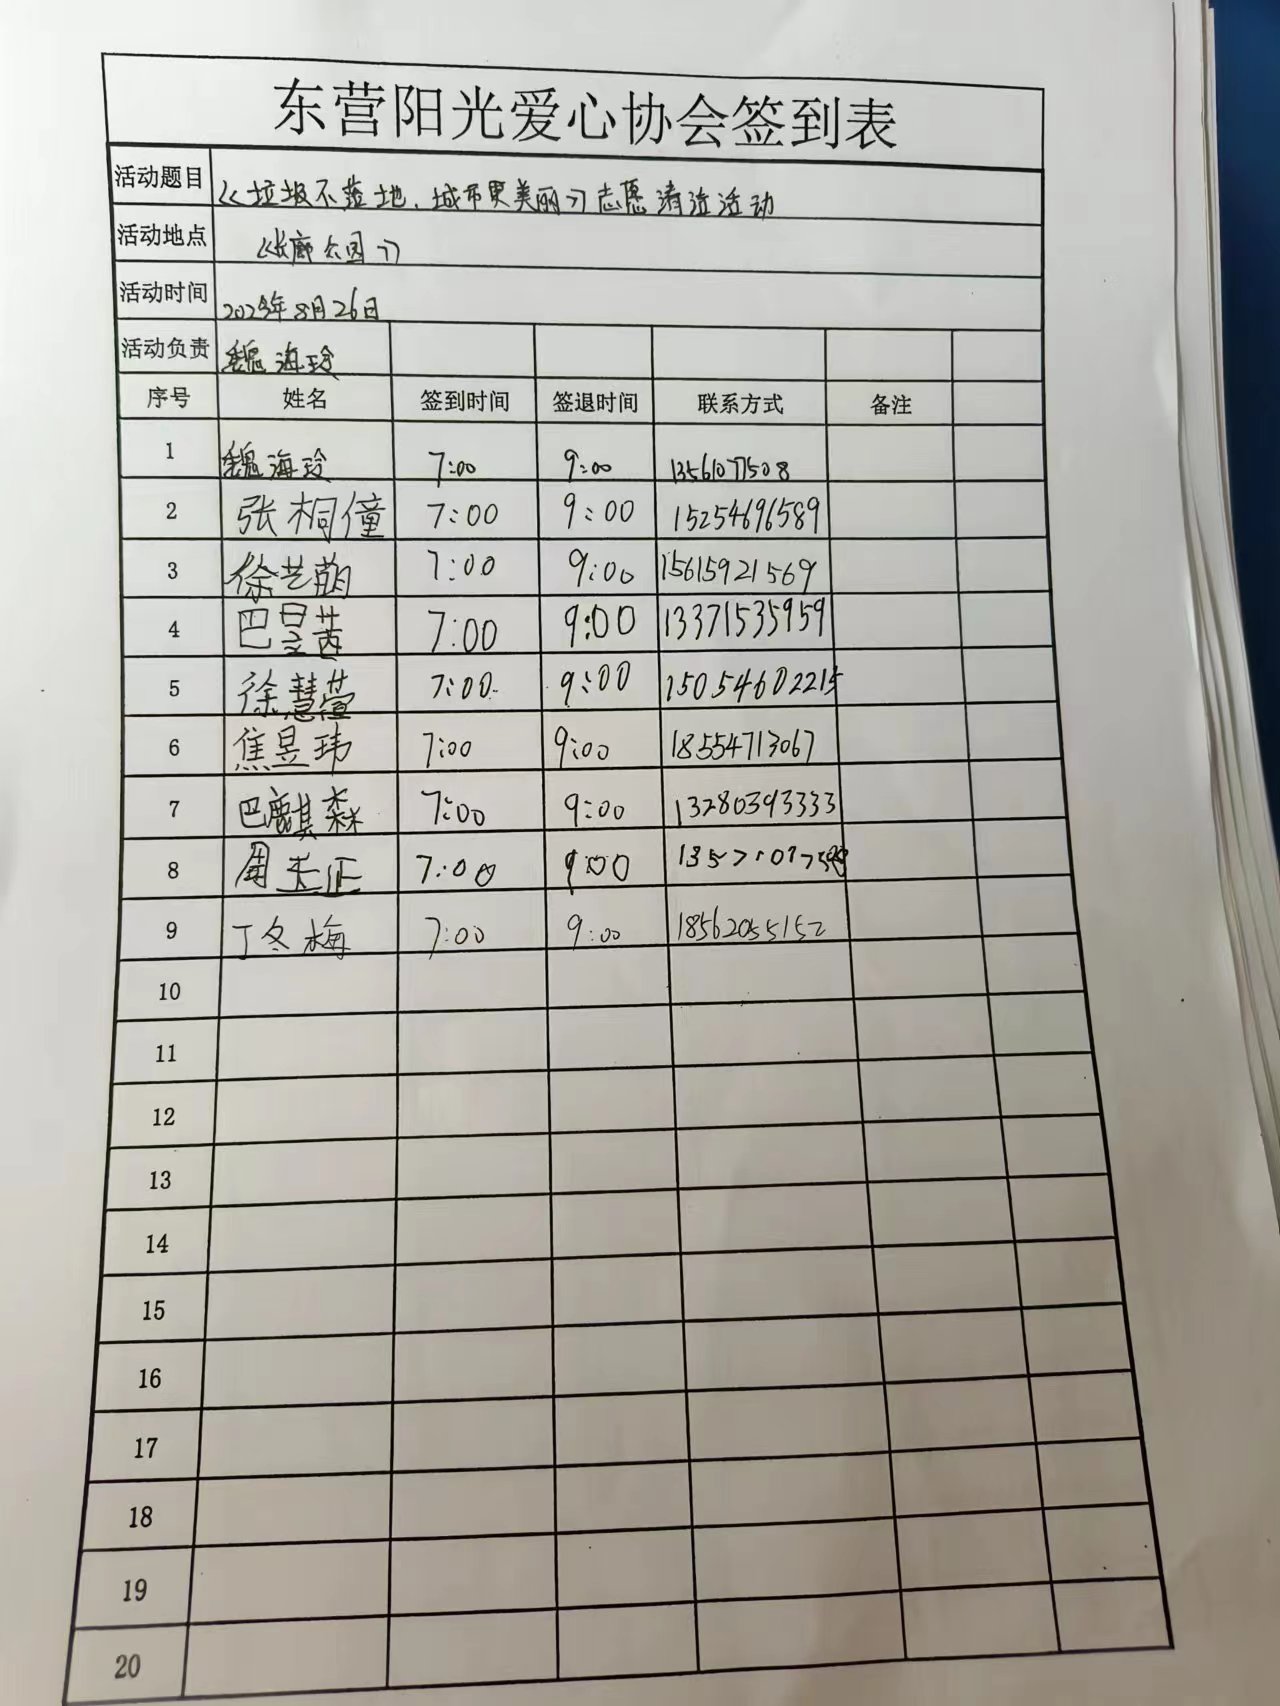 东营阳光爱心协会签到表
活动题目 《垃圾不落地、城市更美丽》志愿清洁活动
活动地点 《长廊公园》
活动时间 2023年8月26日
活动负责 魏海玲
序号 姓名 签到时间 签退时间 联系方式 备注
1 魏海玲 7:00 9:00 13561077508
2 张桐僮 7:00 9:00 15254696589
3 徐艺萌 7:00 9:00 15615921569
4 巴昱茜 7:00 9:00 13371535959
5 徐慧萱 7:00 9:00 15054602215
6 焦昱玮 7:00 9:00 18554713067
7 巴麒森 7:00 9:00 13280393333
8 周 正 7:00 9:00
9 丁冬梅 7:00 9:00 18562055152
10
11
12
13
14
15
16
17
18
19
20